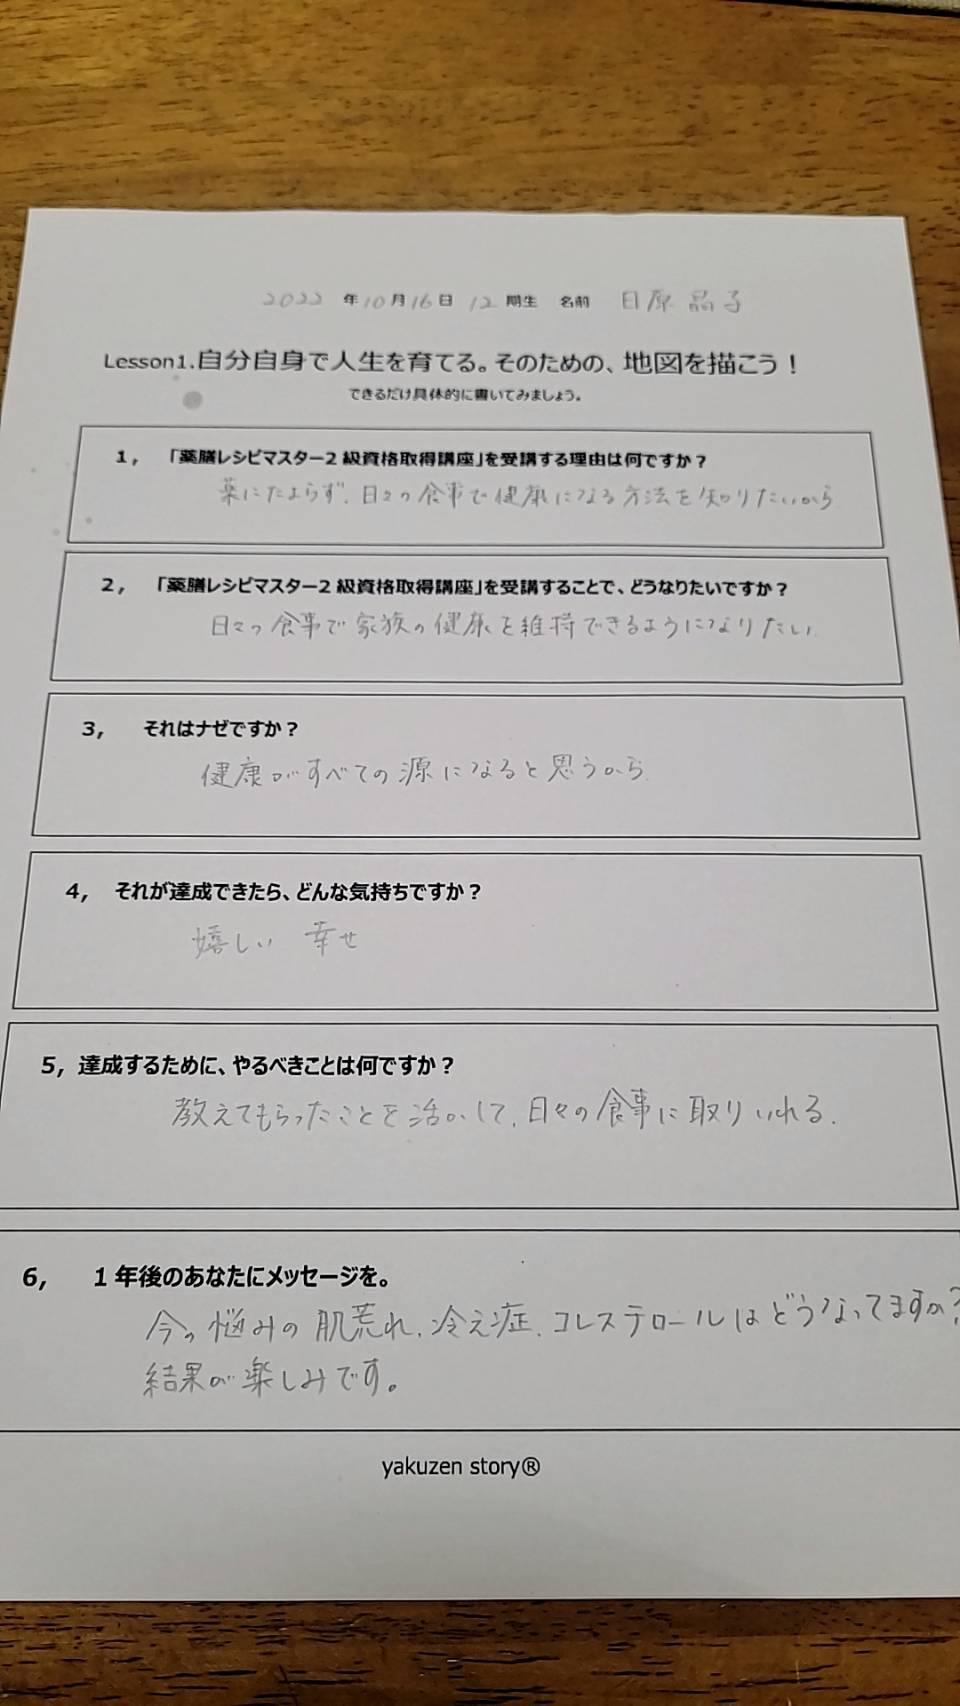 2022 年 10 月 16 日 12 期生 名前 日原 晶子
Lesson1.自分自身で人生を育てる。そのための、地図を描こう！
できるだけ具体的に書いてみましょう。
1, 「薬膳レシピマスター2級資格取得講座」を受講する理由は何ですか？
薬にたよらず、日々の食事で健康になる方法を知りたいから
2, 「薬膳レシピマスター2級資格取得講座」を受講することで、どうなりたいですか？
日々の食事で家族の健康を維持できるようになりたい
3, それはナゼですか？
健康がすべての源になると思うから
4, それが達成できたら、どんな気持ちですか？
嬉しい 幸せ
5, 達成するために、やるべきことは何ですか？
教えてもらったことを活かして、日々の食事に取りいれる。
6, 1年後のあなたにメッセージを。
今の悩みの肌荒れ、冷え症、コレステロールはどうなってますか？
結果が楽しみです。
yakuzen story®